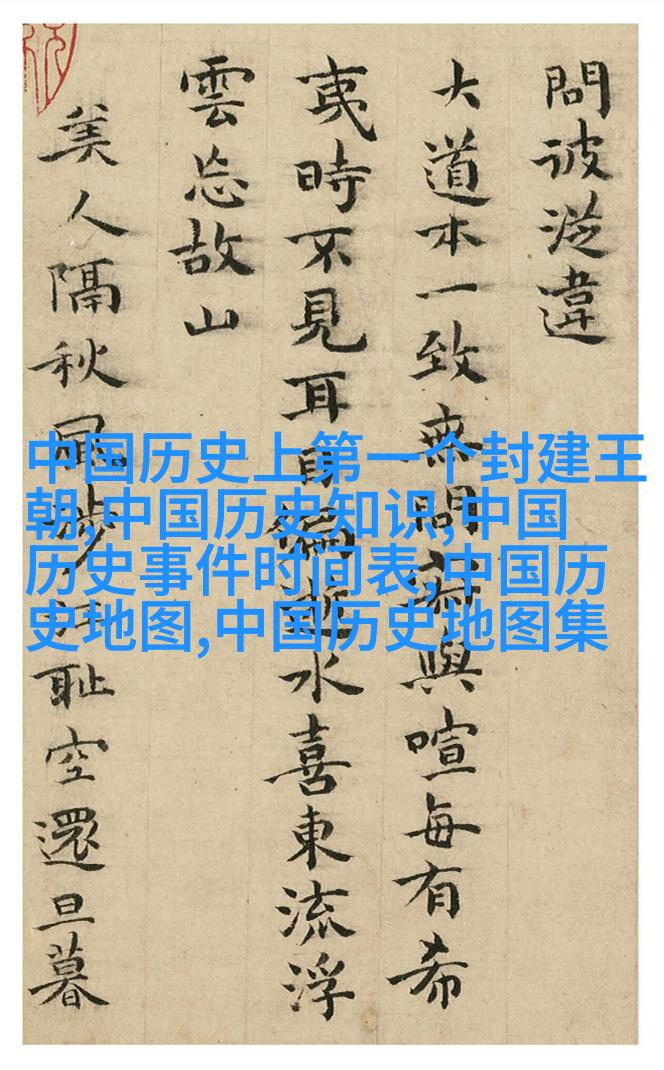 問違
大道本一致問與喧每有希
夷時不見耳水喜東流浮
雲忘故山
美人隔秋恥空還旦暮
中国历史上第一个封建王
朝,中国历史知识,中国
历史事件时间表,中国历
史地图,中国历史地图集